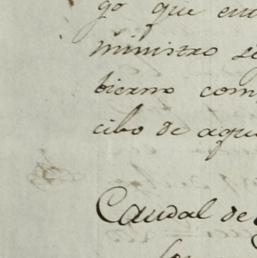 go que
ministro
bierno com
cibo de aque
Caudal de